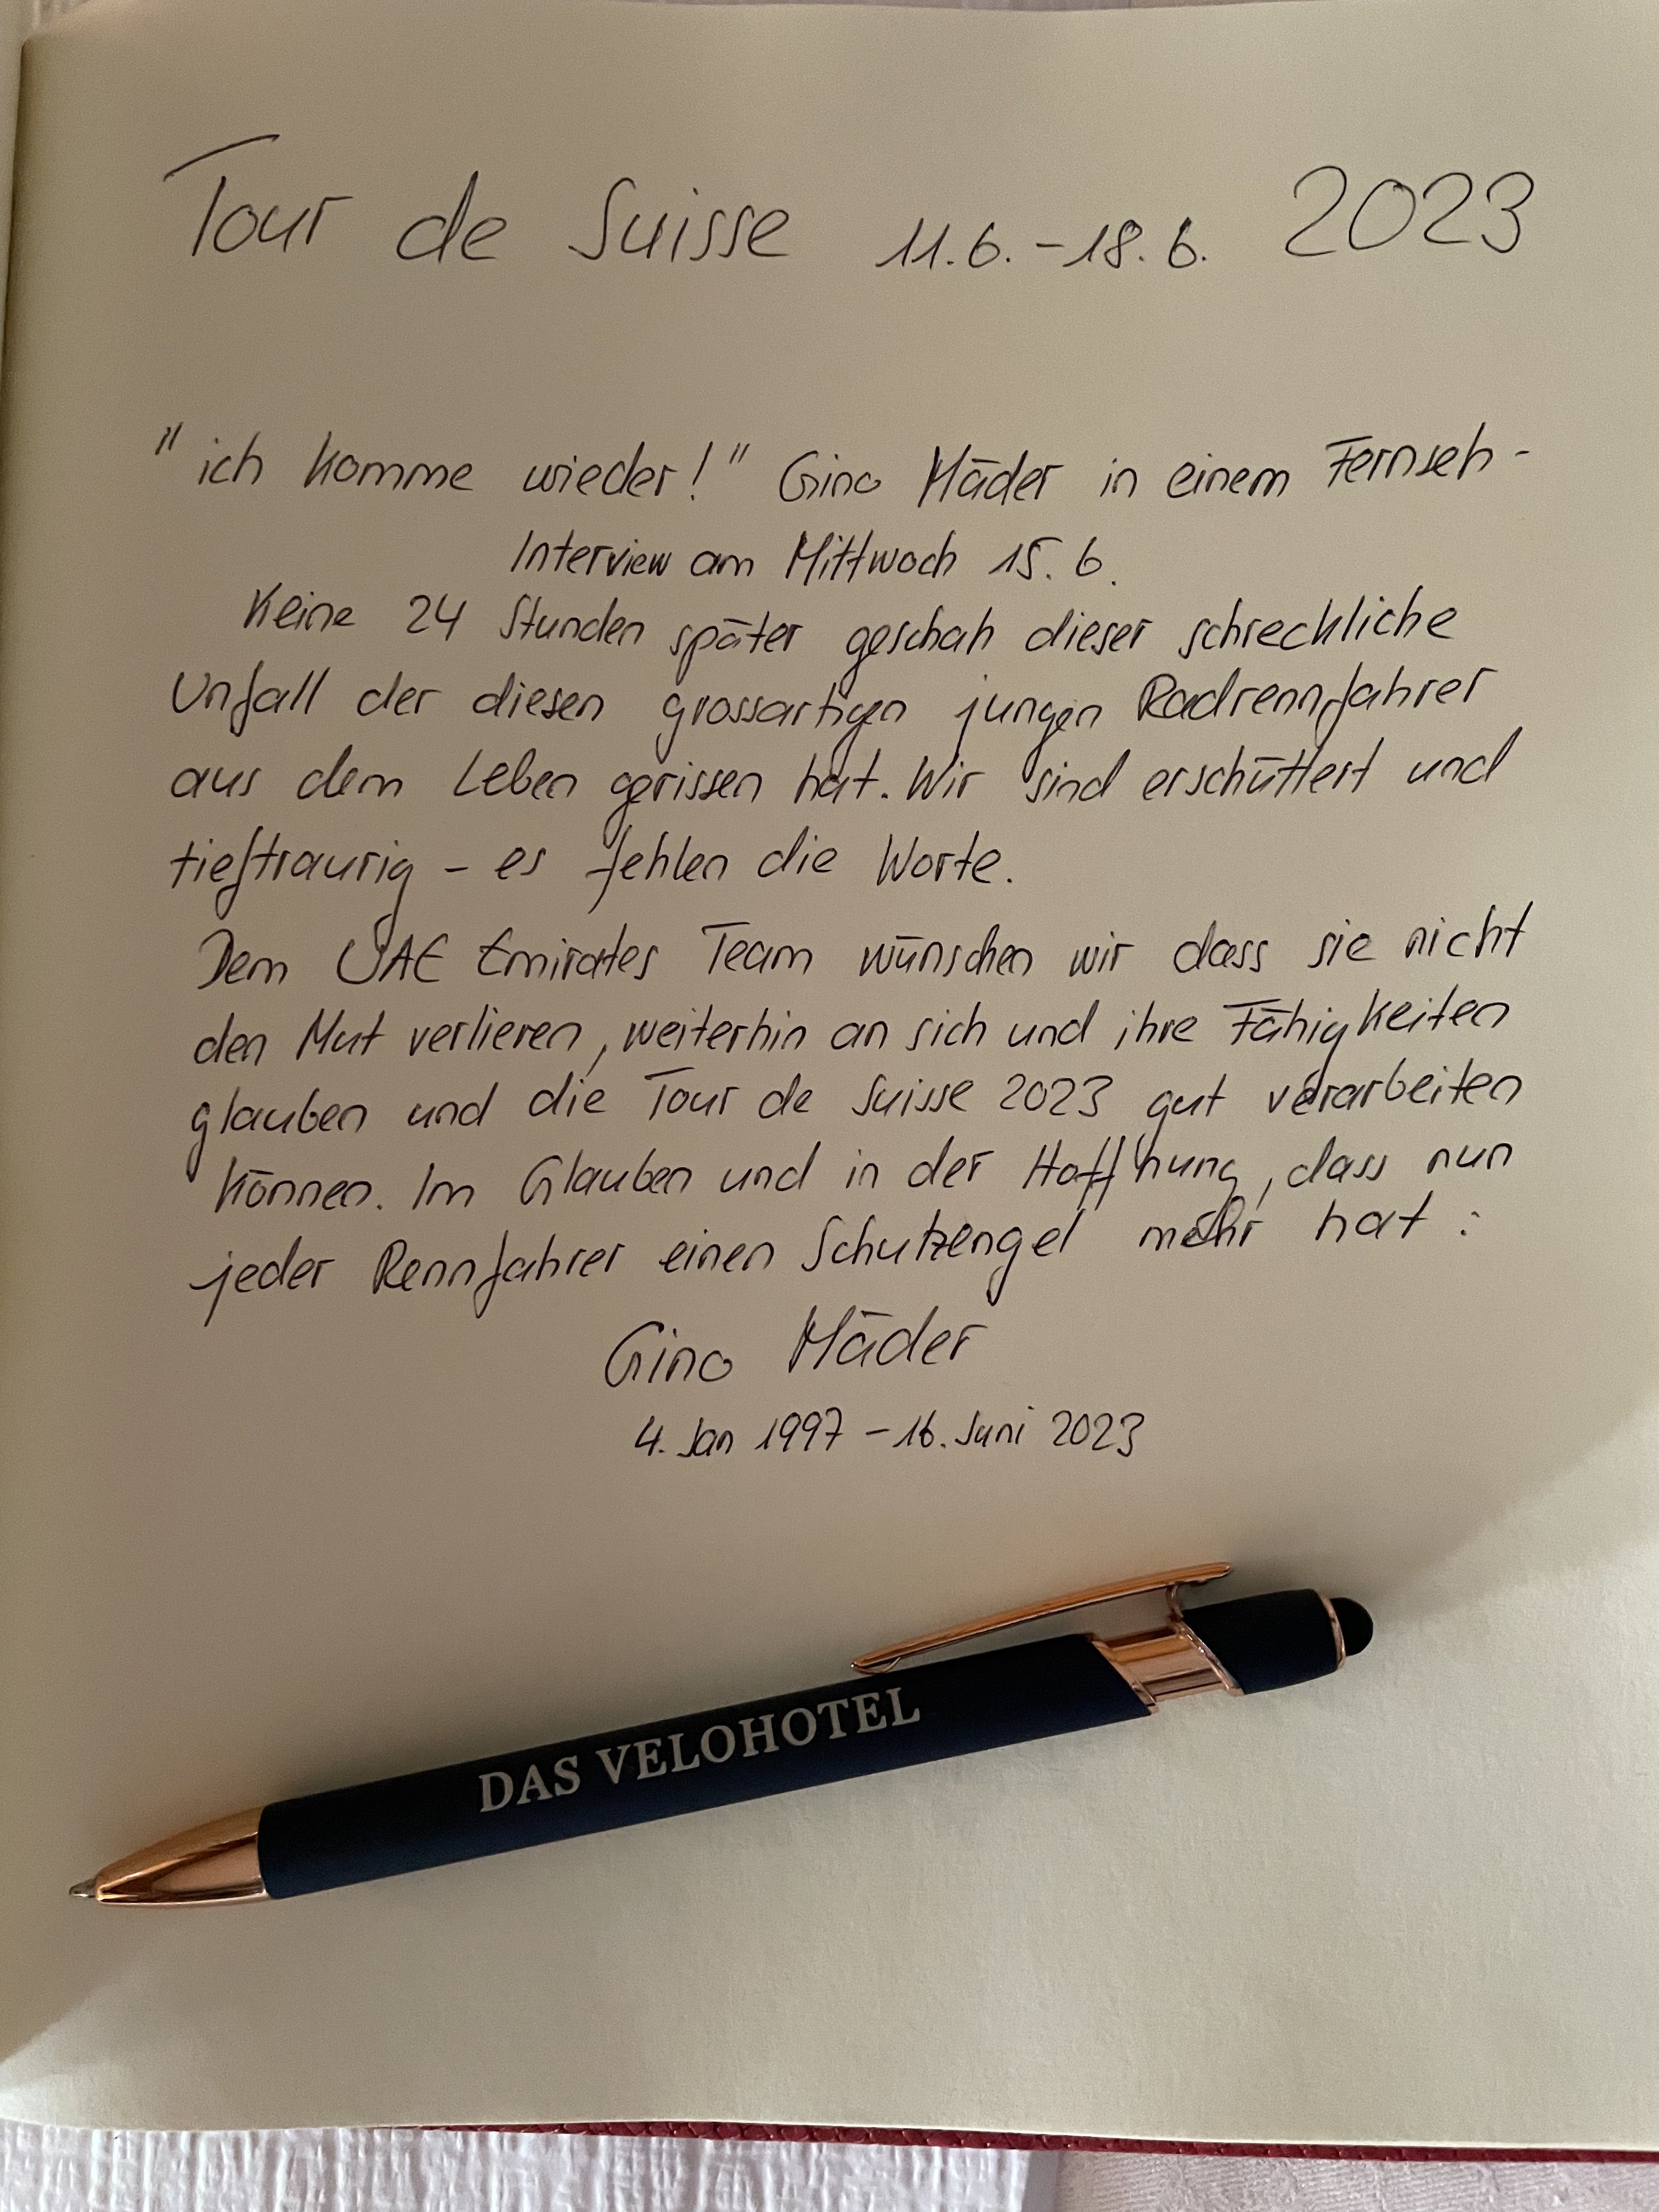 Tour de Suisse 11.6.-18.6. 2023
"ich komme wieder!" Gino Mäder in einem Fernseh-
Interview am Mittwoch 15.6.
Keine 24 Stunden später geschah dieser schreckliche
Unfall der diesen grossartigen jungen Radrennfahrer
aus dem Leben gerissen hat. Wir sind erschüttert und
tieftraurig - es fehlen die Worte.
Dem UAE Emirates Team wünschen wir dass sie nicht
den Mut verlieren, weiterhin an sich und ihre Fähigkeiten
glauben und die Tour de Suisse 2023 gut verarbeiten
können. Im Glauben und in der Hoffnung, dass nun
jeder Rennfahrer einen Schutzengel mehr hat:
Gino Mäder
4. Jan 1997 - 16. Juni 2023
DAS VELOHOTEL